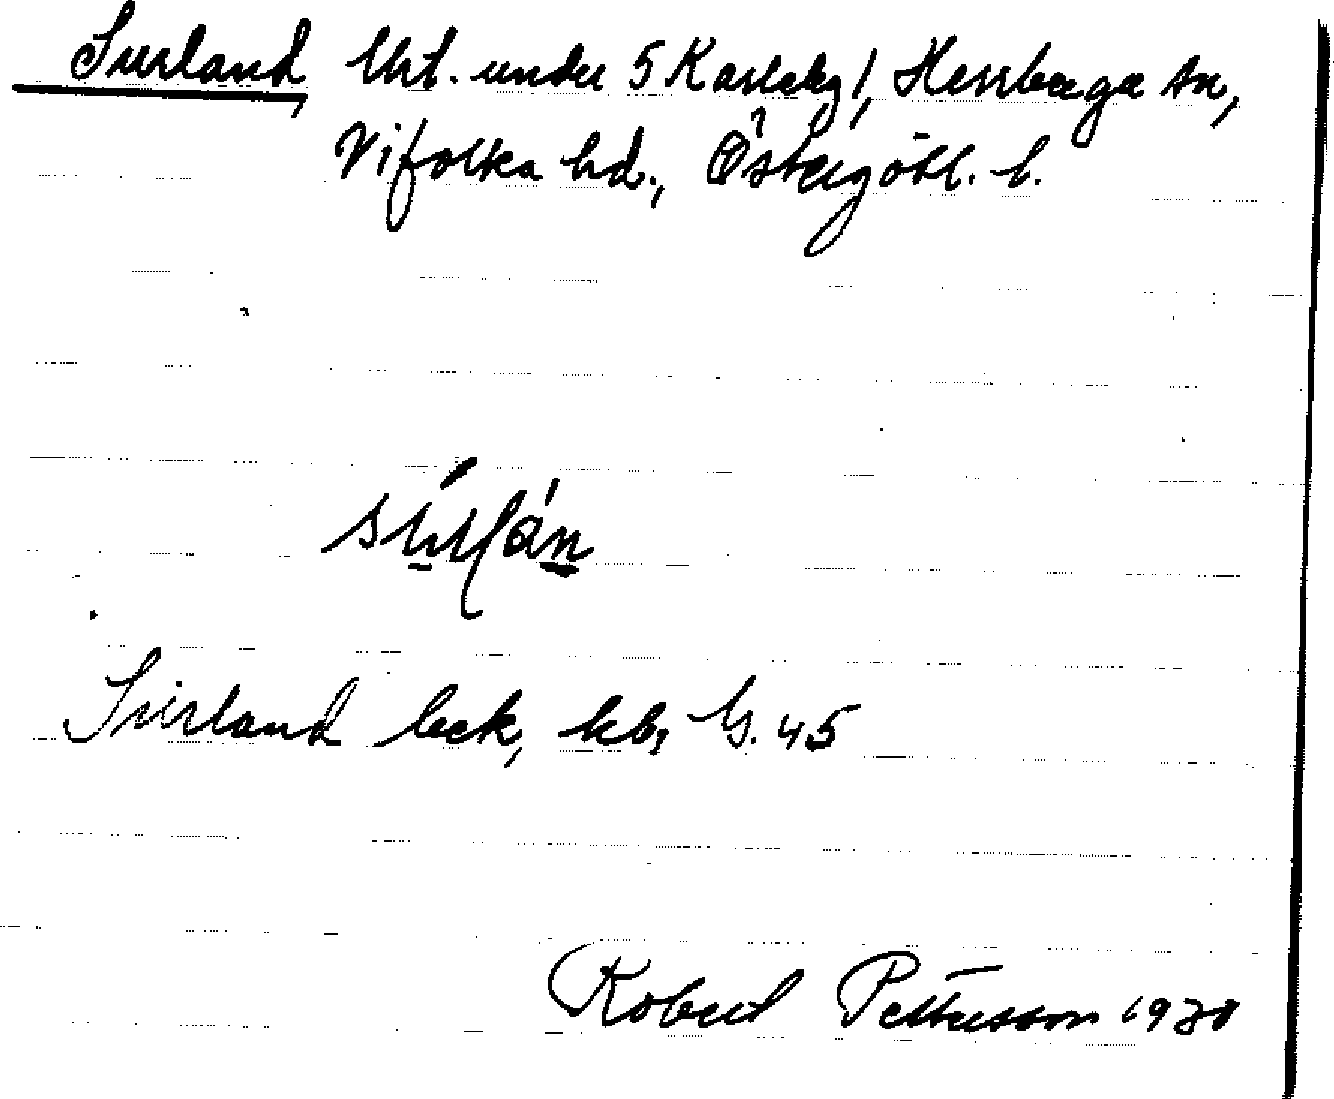 Surland, Urt. under 5 Karleby 1, Herrberga sn,
Vifolka hd., Östergötl. l.
Surland beck, kb, G. 45
Robert Pettersson 1930